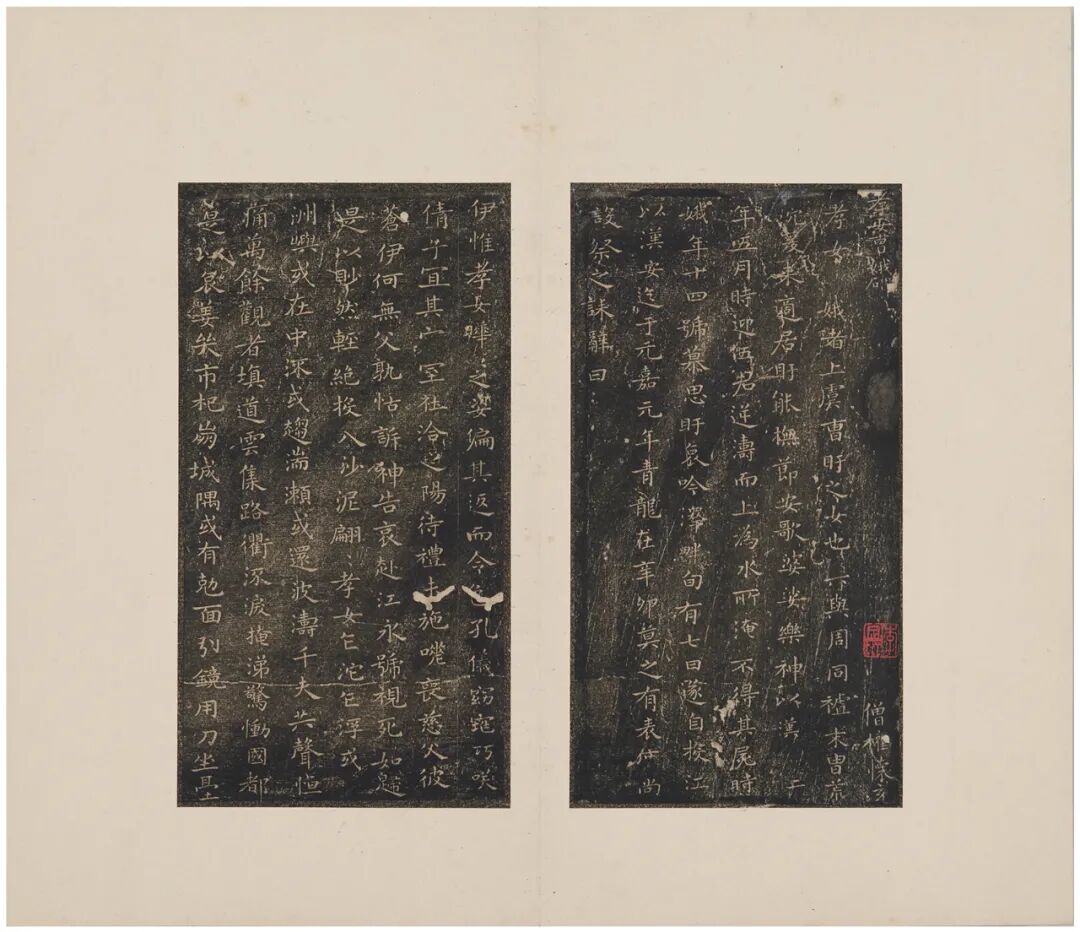 孝女曹娥碑
僧權 懷充
孝女 娥者上虞曹盱之女也 與周同祖末冑荒
沉爰來適居盱能撫節安歌婆娑樂神以漢 二
年五月時迎伍君逆濤而上為水所淹不得其屍時
娥年十四號慕思盱哀吟澤畔旬有七日遂自投江
以漢安迄于元嘉元年青龍在辛卯莫之有表度尚
設祭之誄辭曰
伊惟孝女曄之姿偏其返而令 孔儀窈窕巧笑
倩兮宜其 室在洽之陽待禮未施嗟喪慈父彼
蒼伊何無父孰怙訴神告哀赴江永號視死如歸
是以眇然輕絕投入沙泥翩 孝女乍沉乍浮或
洲嶼或在中流或趨湍瀨或還波濤千夫失聲悼
痛萬餘觀者填道雲集路衢流淚掩涕驚慟國都
是以哀姜哭市杞崩城隅或有剋面引鏡用刀坐臺